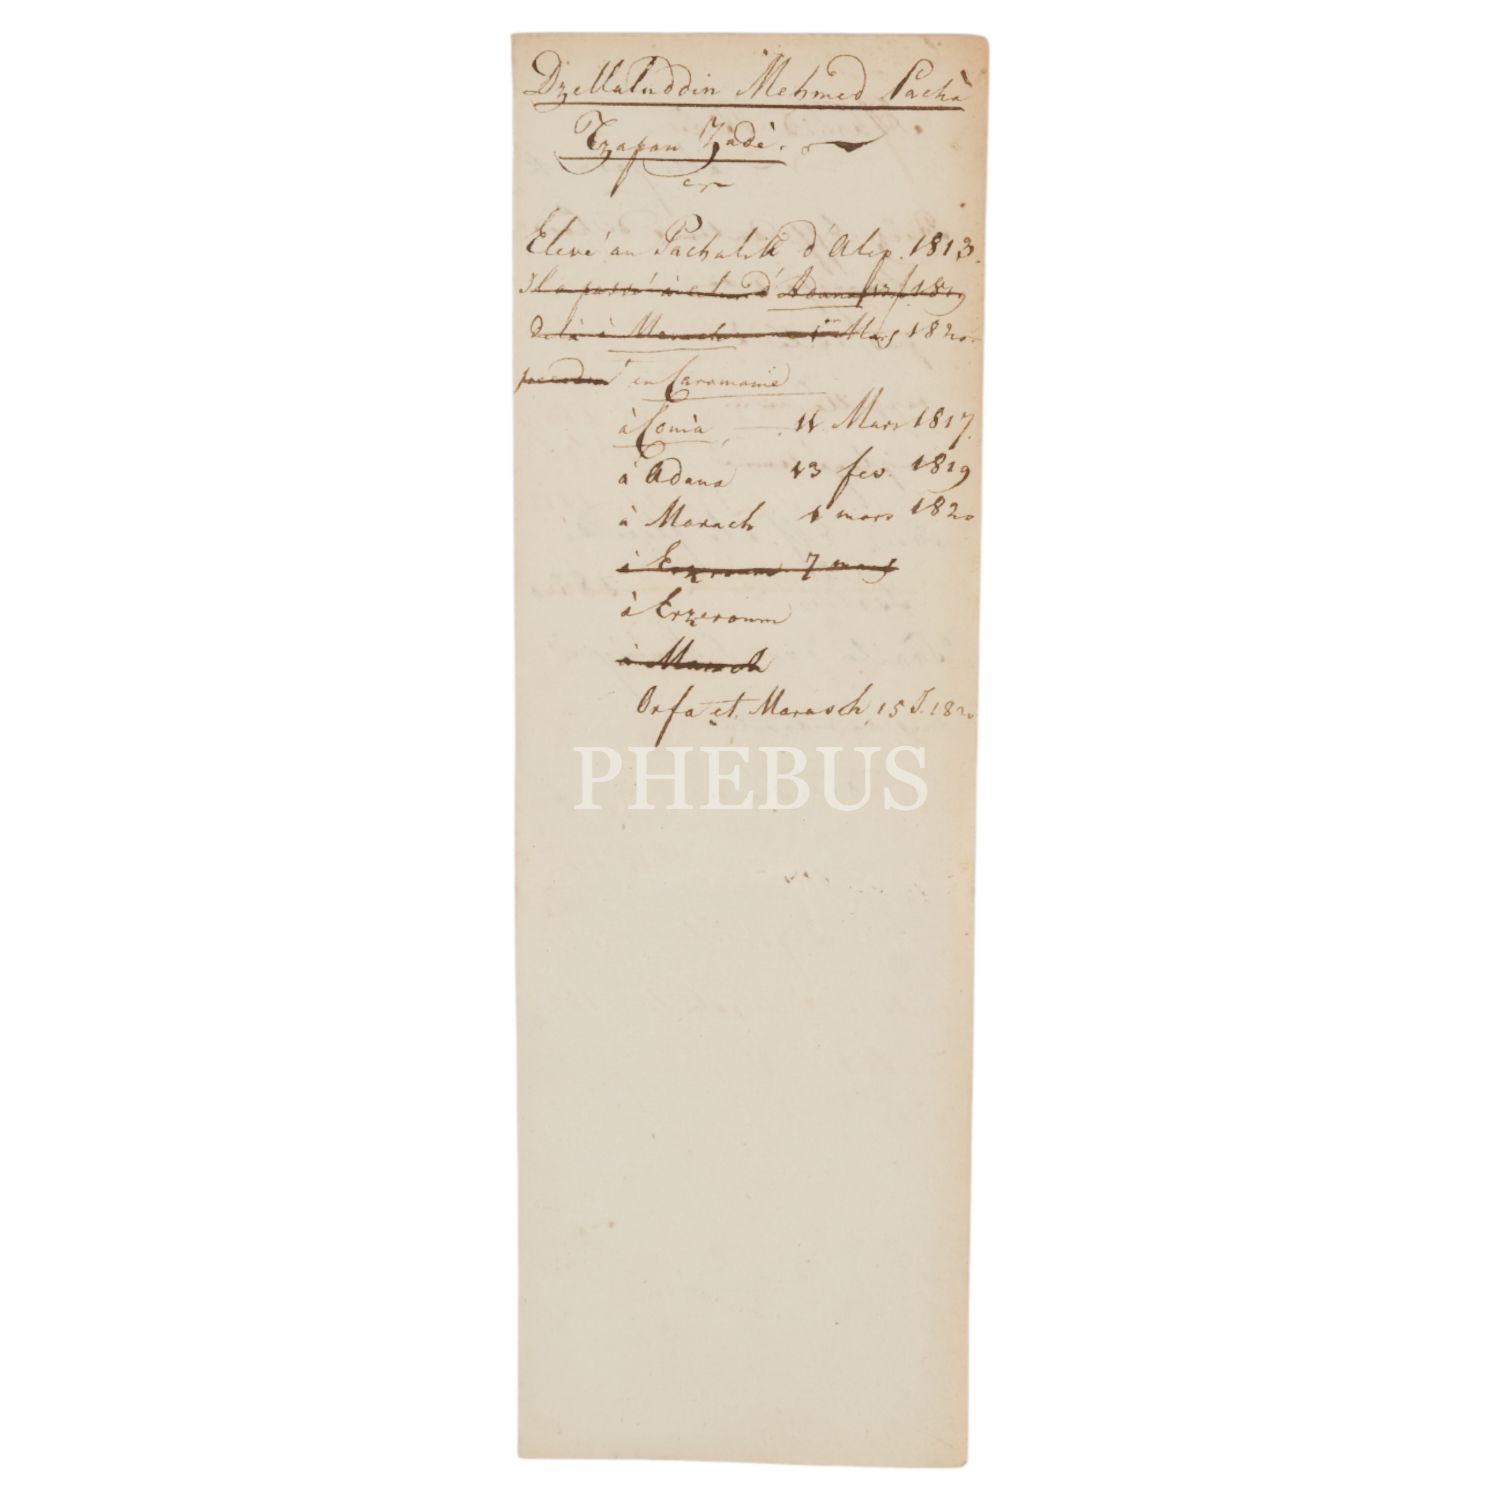 Dzellaluddin Mehmed Pachà
Tzapan Zadè.
Elevé au Pachalik d'Alep. 1813.
Il a passé à celui d'Adana 13 f. 1819
de là à Marach 1er Mars 1820
en Caramanie
à Conia, 11 Mars 1817.
à Adana 13 fev. 1819
à Marach 1 mars 1820
à Erzeroum 7 mars
à Erzeroum
à Marach
Orfa et Marasch, 15 J. 1820
PHEBUS